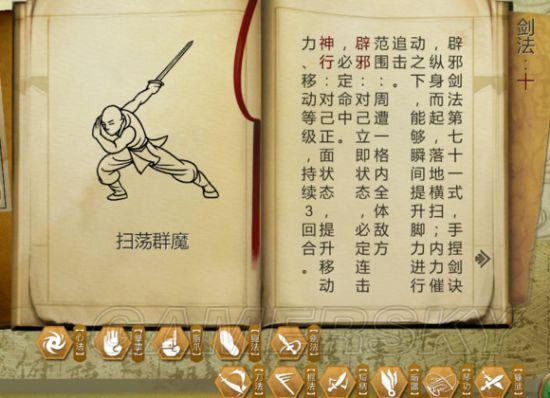 剑法：十
辟邪剑法第七十一式，手捏剑诀
，纵身而起，落地横扫；内力催
动之下，能够瞬间提升脚力进行
追击。
范围：对周遭一格内全体敌方
辟邪：对己立即状态，必定连击
，必定命中。
神行：对己正面状态，提升移动
力、移动等级，持续3回合。
扫荡群魔
GAMERSKY
【心法】
【腿法】
【剑法】
【刀法】
【棍法】
【短柄】
【暗器】